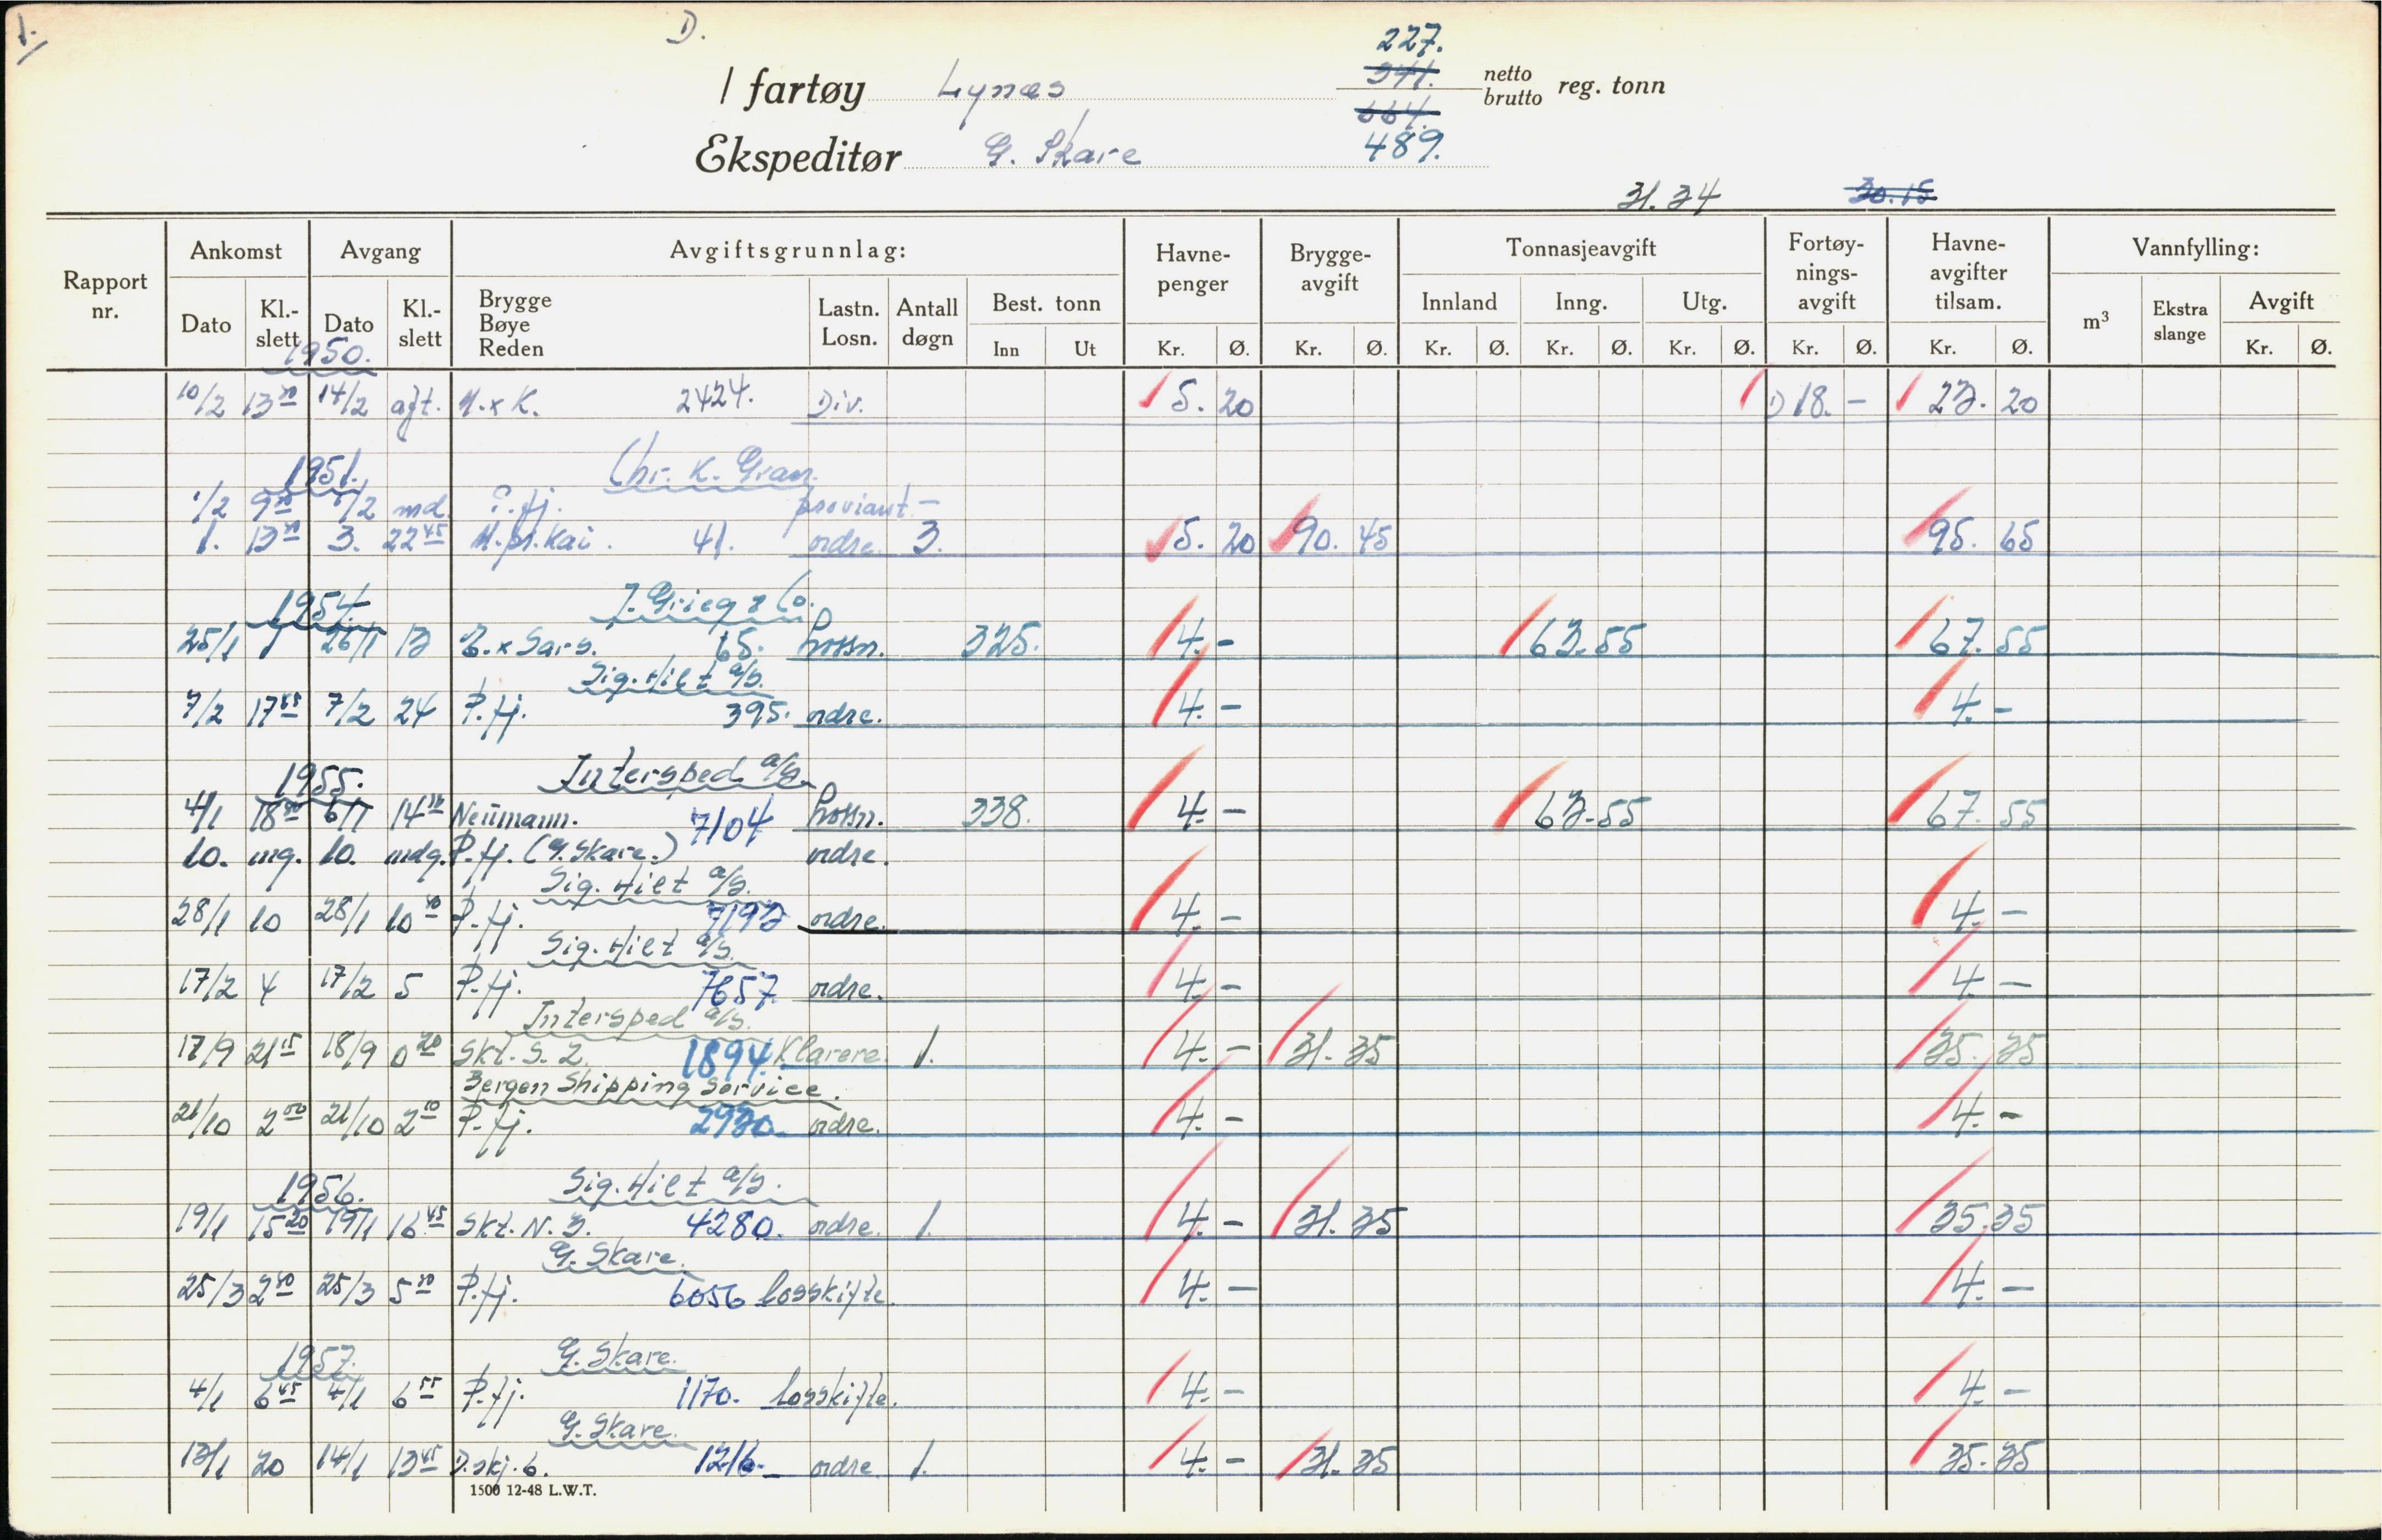 1.
D.
227.
I fartøy Lynæs 341. netto
brutto reg. tonn
664.
Ekspeditør G. Skare 489.
31.34 30.15
Rapport nr. Ankomst Avgang Avgiftsgrunnlag: Havnepenger Bryggeavgift Tonnasjeavgift Fortøyningsavgift Havneavgifter tilsam. Vannfylling:
Dato Kl.-slett Dato Kl.-slett Brygge Bøye Reden Lastn. Losn. Antall døgn Best. tonn Innland Inng. Utg. m³ Ekstra slange Avgift
Inn Ut Kr. Ø. Kr. Ø. Kr. Ø. Kr. Ø. Kr. Ø. Kr. Ø. Kr. Ø. Kr. Ø.
1950.
10/2 13 30 14/2 aft. M.x K. 2424. Div. 5. 20 D 18. - 23. 20
1951. Chr. K. Gran.
1/2 9 1/2 md. P.fj. proviant -
1. 13 30 3. 22 45 M.pr.kai. 41. ordre. 3. 5. 20 90. 45 95. 65
1954. J. Grieg & Co.
25/1 1 26/1 13 B.x Sars. 65. Lossn. 325. 4. - 63.55 67.55
Sig. Hilt a/s.
7/2 17 45 7/2 24 P.fj. 395. ordre. 4. - 4. -
1955. Intersped a/s.
4/1 18 6/1 14 30 Neumann. 7104 Lossn. 338. 4. - 63.55 67.55
10. mg. 10. mdg. P.fj. (G. Skare.) ordre.
Sig. Hilt a/s.
28/1 10 28/1 10 P.fj. 7193 ordre. 4. - 4. -
Sig. Hilt a/s.
17/2 4 17/2 5 P.fj. 7657. ordre. 4. - 4. -
Intersped a/s.
17/9 21 15 18/9 0 20 Skt. S. 2. 1894. Klarere. 1. 4. - 31. 35 35. 35
Bergen Shipping Service.
21/10 2 00 21/10 2 10 P.fj. 2930. ordre. 4. - 4. -
1956. Sig. Hilt a/s.
19/1 15 20 19/1 16 45 Skt. N. 3. 4280. ordre. 1. 4. - 31. 35 35.35
G. Skare.
25/3 2 25/3 5 P.fj. 6056 losskifte. 4. - 4. -
1957. G. Skare.
4/1 6 45 4/1 6 55 P.fj. 1170. losskifte. 4. - 4. -
G. Skare.
13/1 20 14/1 13 45 D.skj. 6. 1216. ordre. 1. 4. - 31. 35 35. 35
1500 12-48 L.W.T.